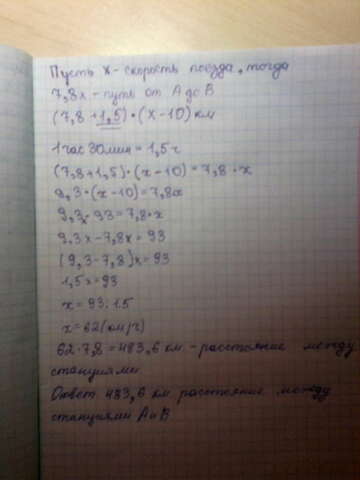 Пусть х - скорость поезда, тогда
7,8х - путь от А до В
(7,8 + 1,5) • (х - 10) км
1 час 30 мин = 1,5 ч
(7,8+1,5)·(х-10) = 7,8·х
9,3·(х-10)=7,8х
9,3х-93=7,8·х
9,3х-7,8х=93
(9,3-7,8)х=93
1,5х=93
х=93:1.5
х=62(км/ч)
62·7,8=483,6 км - расстояние между
станциями
Ответ 483,6 км расстояние между
станциями А и В